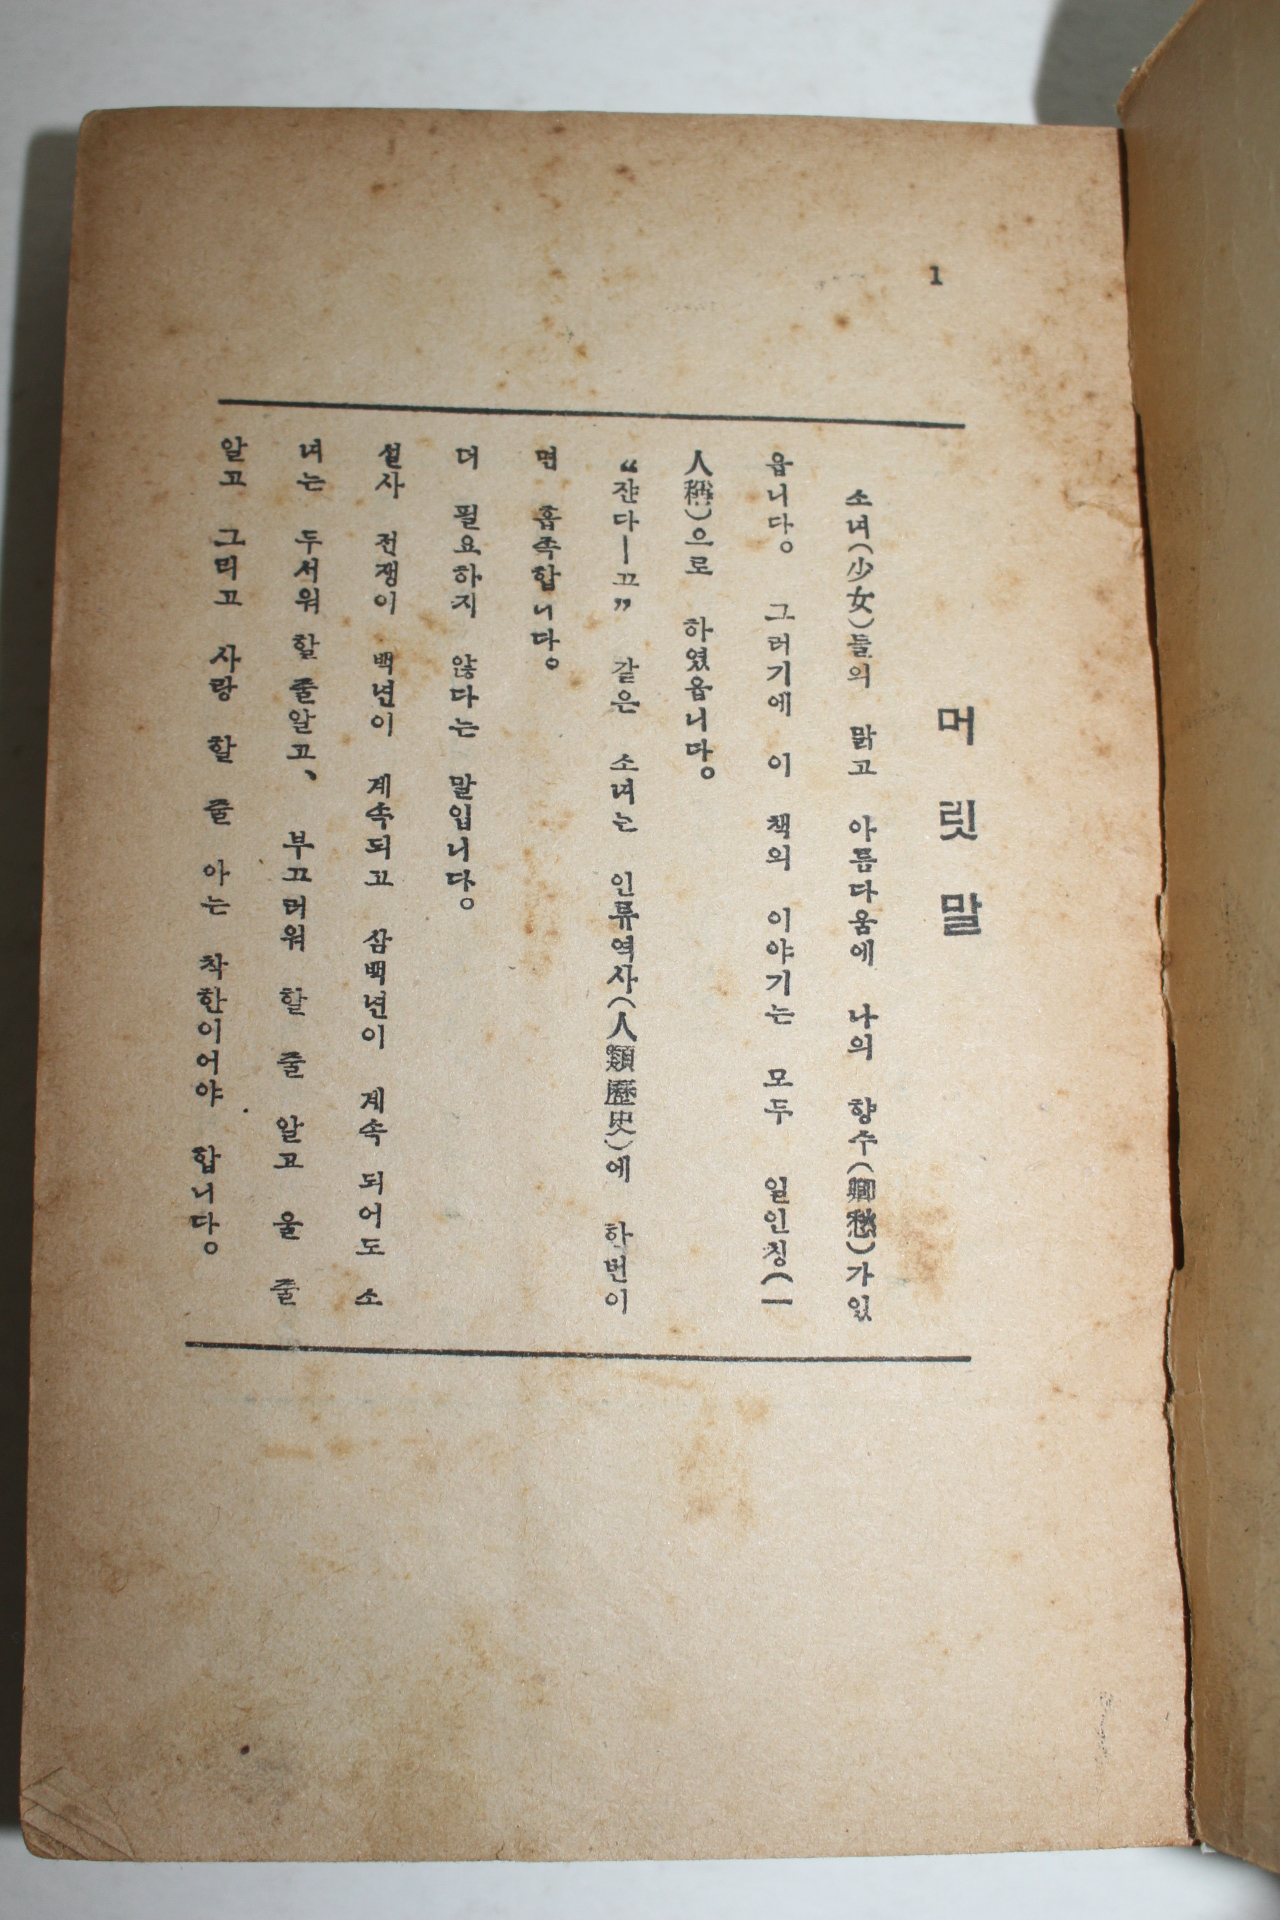 1
머릿말
소녀(少女)들의 맑고 아름다움에 나의 향수(鄕愁)가있
읍니다。 그러기에 이 책의 이야기는 모두 일인칭(一
人稱)으로 하였읍니다。
“쟌다—끄” 같은 소녀는 인류역사(人類歷史)에 하번이
면 흡족합니다。
더 필요하지 않다는 말입니다。
설사 전쟁이 백년이 계속되고 삼백년이 계속 되어도 소
녀는 두서워할 줄알고、 부끄러워 할 줄 알고 울 줄
알고 그리고 사랑 할 줄 아는 착한이어야 합니다。